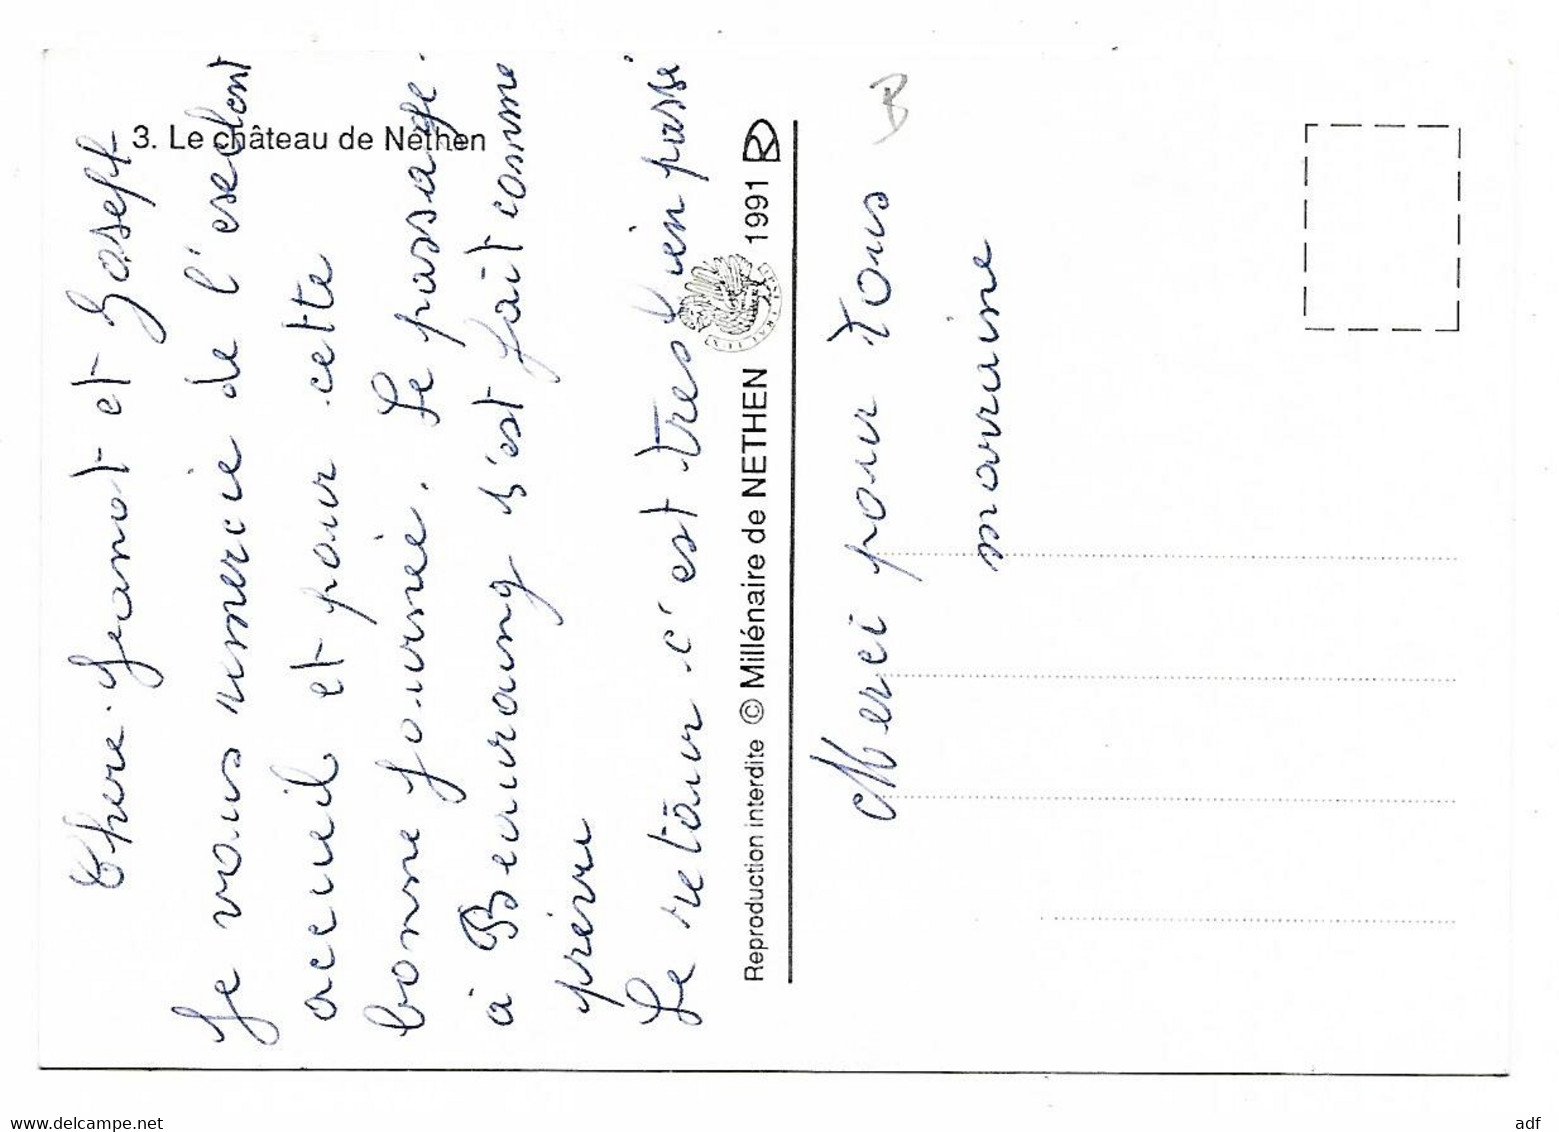 3. Le château de Nethen
Chere Jeanot et Joseph
Je vous remercie de l'exelent
accueil et pour cette
bonne journée. Le passage
à Beauraing s'est fait comme
prévu
Le retour c'est tres bien passé
Reproduction interdite © Millénaire de NETHEN 1991
B
Merci pour tous
marraine
www.delcampe.net
adf